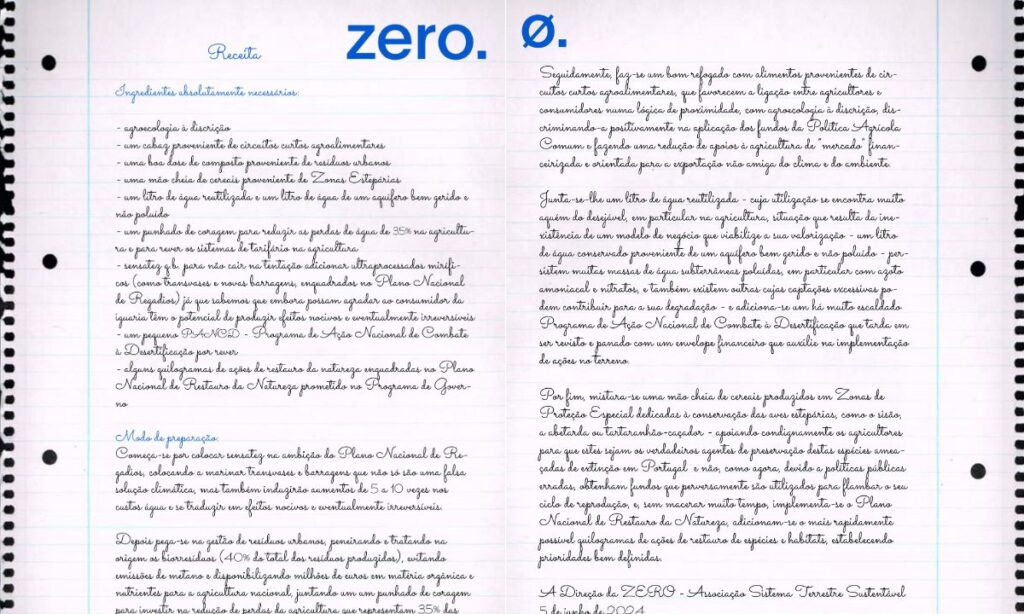 zero.
Receita
Ingredientes absolutamente necessários:
- agroecologia à discrição
- um cabaz proveniente de circuitos curtos agroalimentares
- uma boa dose de composto proveniente de resíduos urbanos
- uma mão cheia de cereais proveniente de Zonas Estepárias
- um litro de água reutilizada e um litro de água de um aquífero bem gerido e
não poluído
- um punhado de coragem para reduzir as perdas de água de 35% na agricultu-
ra e para rever os sistemas de tarifário na agricultura
- sensatez q.b. para não cair na tentação adicionar ultraprocessados mirífi-
cos (como transvases e novas barragens, enquadrados no Plano Nacional
de Regadios) já que sabemos que embora possam agradar ao consumidor da
iguaria têm o potencial de produzir efeitos nocivos e eventualmente irreversíveis
- um pequeno PANCD - Programa de Ação Nacional de Combate
à Desertificação por rever
- alguns quilogramas de ações de restauro da natureza enquadradas no Plano
Nacional de Restauro da Natureza prometido no Programa de Gover-
no
Modo de preparação:
Começa-se por colocar sensatez na ambição do Plano Nacional de Re-
gadios, colocando a marinar transvases e barragens que não só são uma falsa
solução climática, mas também induzirão aumentos de 5 a 10 vezes nos
custos água e se traduzir em efeitos nocivos e eventualmente irreversíveis.
Depois pega-se na gestão de resíduos urbanos, peneirando e tratando na
origem os biorresíduos (40% do total dos resíduos produzidos), evitando
emissões de metano e disponibilizando milhões de euros em matéria orgânica e
nutrientes para a agricultura nacional, juntando um um punhado de coragem
para investir na redução de perdas da agricultura que representam 35% das
Ø.
Seguidamente, faz-se um bom refogado com alimentos provenientes de cir-
cuitos curtos agroalimentares, que favorecem a ligação entre agricultores e
consumidores numa lógica de proximidade, com agroecologia à discrição, dis-
criminando-a positivamente na aplicação dos fundos da Política Agrícola
Comum e fazendo uma redução de apoios à agricultura de "mercado" finan-
ceirizada e orientada para a exportação não amiga do clima e do ambiente.
Junta-se-lhe um litro de água reutilizada - cuja utilização se encontra muito
aquém do desejável, em particular na agricultura, situação que resulta da ine-
xistência de um modelo de negócio que viabilize a sua valorização - um litro
de água conservado proveniente de um aquífero bem gerido e não poluído - per-
sistem muitas massas de água subterrâneas poluídas, em particular com azoto
amoniacal e nitratos, e também existem outras cujas captações excessivas po-
dem contribuir para a sua degradação - e adiciona-se um há muito escaldado
Programa de Ação Nacional de Combate à Desertificação que tarda em
ser revisto e panado com um envelope financeiro que auxilie na implementação
de ações no terreno.
Por fim, mistura-se uma mão cheia de cereais produzidos em Zonas de
Proteção Especial dedicadas à conservação das aves estepárias, como o sisão,
a abetarda ou tartaranhão-caçador - apoiando condignamente os agricultores
para que estes sejam os verdadeiros agentes de preservação destas espécies amea-
çadas de extinção em Portugal e não, como agora, devido a políticas públicas
erradas, obtenham fundos que perversamente são utilizados para flambar o seu
ciclo de reprodução, e, sem macerar muito tempo, implementa-se o Plano
Nacional de Restauro da Natureza, adicionam-se o mais rapidamente
possível quilogramas de ações de restauro de espécies e habitats, estabelecendo
prioridades bem definidas.
A Direção da ZERO - Associação Sistema Terrestre Sustentável
5 de junho de 2024